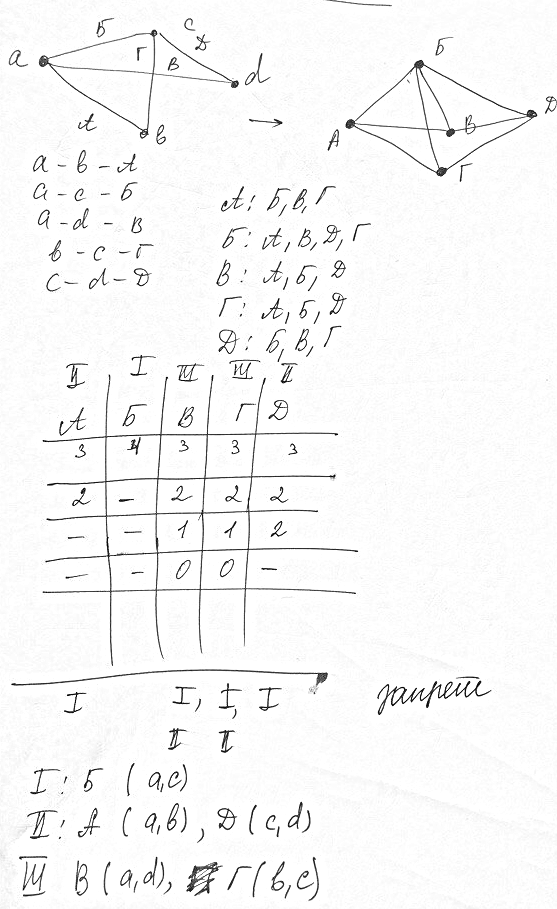 Б
с
Д
Г
В
а
d
А
в
→
Б
А
В
Д
Г
а - в - А
а - с - Б
а - d - В
в - с - Г
с - d - Д
А: Б, В, Г
Б: А, В, Д, Г
В: А, Б, Д
Г: А, Б, Д
Д: Б, В, Г
II I III III II
А Б В Г Д
3 4 3 3 3
2 - 2 2 2
- - 1 1 2
- - 0 0 -
I I, I, I запрет
II II
I: Б (а,с)
II: А (а,в), Д (с,d)
III В (а,d), Г (в,с)